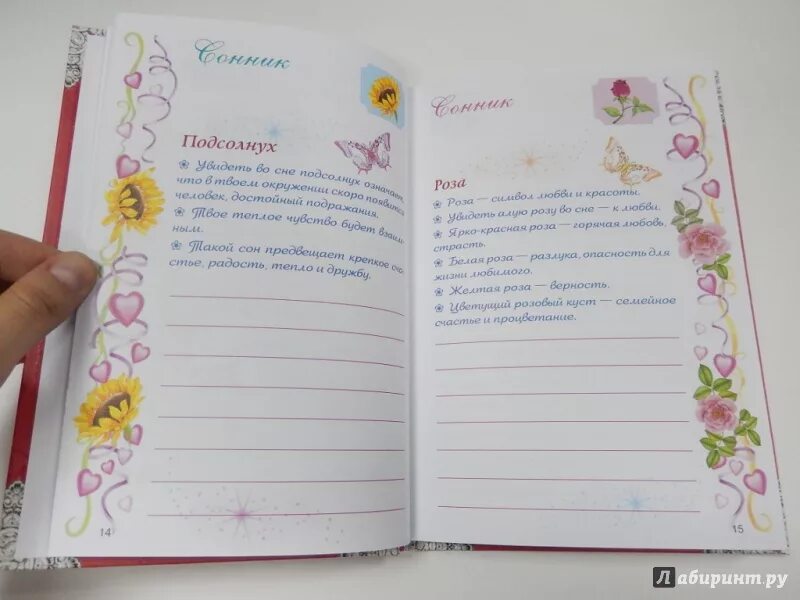 Сонник
Подсолнух
Увидеть во сне подсолнух означает,
что в твоем окружении скоро появится
человек, достойный подражания.
Твое теплое чувство будет взаим-
ным.
Такой сон предвещает крепкое сча-
стье, радость, тепло и дружбу.
14
Сонник
Роза
Роза — символ любви и красоты.
Увидеть алую розу во сне — к любви.
Ярко-красная роза — горячая любовь,
страсть.
Белая роза — разлука, опасность для
жизни любимого.
Желтая роза — верность.
Цветущий розовый куст — семейное
счастье и процветание.
15
Лабиринт.ру